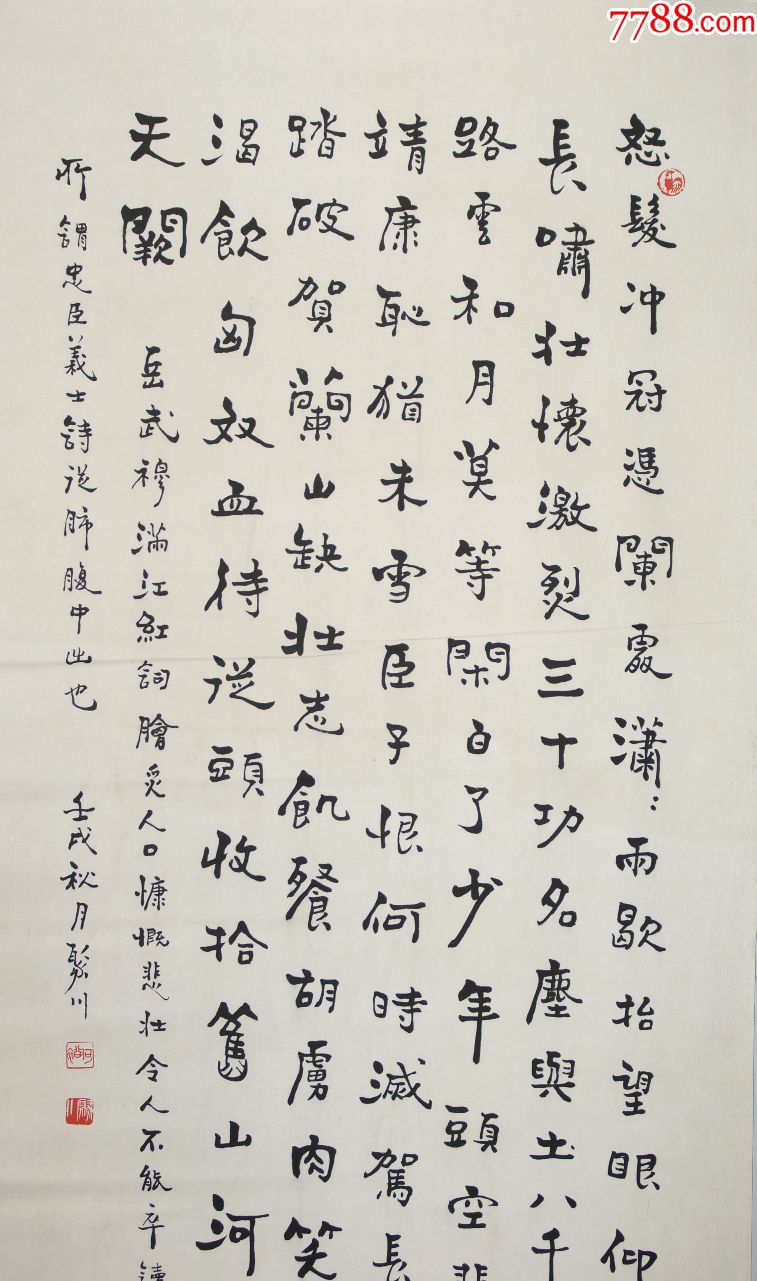 7788.com
怒髮冲冠憑闌處潇〻雨歇抬望眼仰
長嘯壮懷激烈三十功名塵與土八千
路雲和月莫等閑白了少年頭空悲
靖康恥猶未雪臣子恨何時滅駕長
踏破賀蘭山缺壮志飢餐胡虜肉笑
渴飲匈奴血待從頭收拾舊山河
天闕
岳武穆滿江紅詞膾炙人口慷慨悲壮令人不能卒讀
所謂忠臣義士詩從肺腹中出也 壬戌秋月聚川